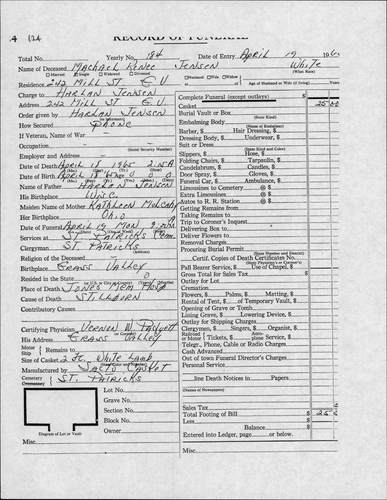 4 124
RECORD OF FUNERAL
Total No. Yearly No. 184 Date of Entry April 19 196
Name of Deceased Machael Renee Jensen White
Married Single Widowed Divorced (What Race)
Residence 242 Mill St G.V. Husband Wife Widow Age of Husband or Wife (if living)
Charge to Harlan Jensen
Address 242 Mill St G.V.
Order given by Harlan Jensen
How Secured Phone
If Veteran, Name of War
Occupation
(Social Security Number)
Employer and Address
Date of Death April 18 1965 2:15A
Date of Birth April 18 65 0 0 0
Name of Father Harlan Jensen
His Birthplace Wisc
Maiden Name of Mother Kathleen Mulcahy
Her Birthplace Ohio
Date of Funeral April 19 Mon 2:00 PM
Services at St Patricks Cem
Clergyman St. Patricks
Religion of the Deceased
Birthplace Grass Valley
Resided in the State 0
Place of Death Jones Mem Hosp
Cause of Death Stillborn
Contributory Causes
Certifying Physician Vernon W Padgett
His Address Grass Valley
Motor Ship Remains to
Size of Casket 2 Ft. White Lamb
Manufactured by Sacto Casket
Cemetery St. Patricks
Crematory
Lot No.
Grave No.
Section No.
Block No.
Owner
Diagram of Lot or Vault
Misc.
Complete Funeral (except outlays)
Casket 25 00
Burial Vault or Box
(State Kind)
Embalming Body
(Name of Embalmer)
Barber, $ Hair Dressing, $
Dressing Body, $ Underwear, $
Suit or Dress
(State Kind and Color)
Slippers, $ Hosiery, $
Folding Chairs, $ Tarpaulin, $
Candelabrum, $ Candles, $
Door Spray, $ Gloves, $
Funeral Car, $ Ambulance, $
Limousines to Cemetery @ $
Extra Limousines @ $
Autos to R. R. Station @ $
Getting Remains from
Taking Remains to
Trip to Coroner's Inquest
Delivering Box to
Deliver Flowers to
Removal Charges
Procuring Burial Permit
(State Number and District)
Certif. Copies of Death Certificates No.
(State Physician's or Coroner's)
Pall Bearer Service, $ Use of Chapel, $
Gross Total for Sales Tax
Outlay for Lot
Cremation
Flowers, $ Palms, $ Matting, $
Rental of Tent, $ of Temporary Vault, $
Opening of Grave or Tomb
Lining Grave, $ Lowering Device, $
Outlay for Shipping Charges
Clergymen, $ Singers, $ Organist, $
Railroad or Motor Tickets, $ Aeroplane Service, $
Telegr., Phone, Cable or Radio Charges
Cash Advanced
Out of town Funeral Director's Charges
Personal Service
line Death Notices in Papers
(Names of Newspapers)
Sales Tax
Total Footing of Bill
Less
Balance
Entered into Ledger, page or below.
Misc.